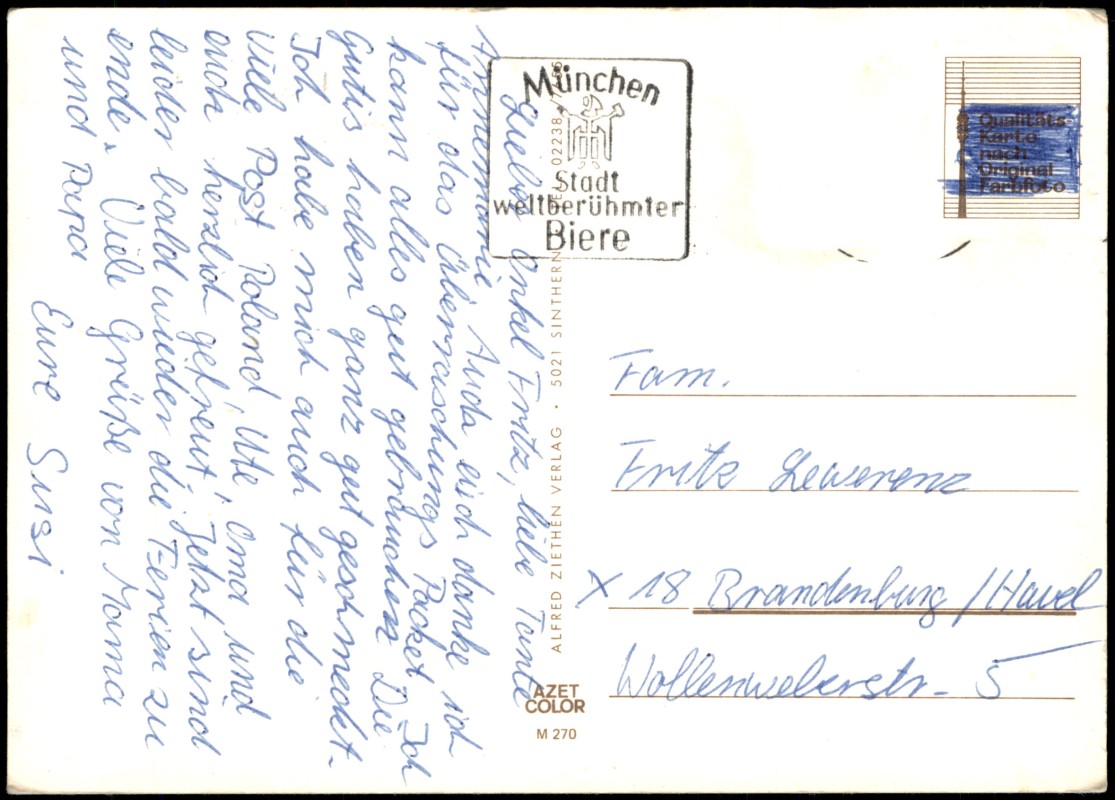 Lieber Onkel Fritz, liebe Tante
Annemarie Auda euch danke ich
für das Überraschungs Packet. Ich
kann alles gut gebrauchen. Die
Gutis haben ganz gut geschmeckt.
Ich habe mich auch für die
viele Post Roland, Ute, Oma und
euch herzlich gefreut. Jetzt sind
leider bald wieder die Ferien zu
ende. Viele Grüße von Mama
und Papa
Eure Susi
München
Stadt
weltberühmter
Biere
ALFRED ZIETHEN VERLAG · 5021 SINTHERN 02238
AZET
COLOR
M 270
Qualitäts-
Karte
nach
Original
Farbfoto
Fam.
Fritz Lewerenz
X 18 Brandenburg/Havel
Wollenweberstr. 5